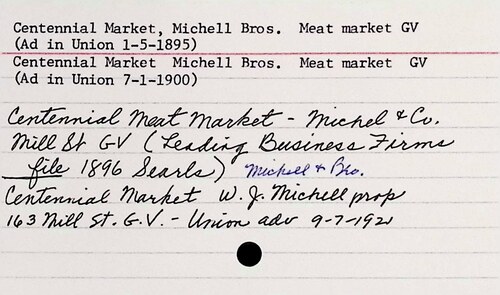 Centennial Market, Michell Bros.  Meat market GV
(Ad in Union 1-5-1895)
Centennial Market  Michell Bros.  Meat market  GV
(Ad in Union 7-1-1900)
Centennial Meat Market - Michel & Co.
Mill St GV (Leading Business Firms
file 1896 Searls) Michell & Bro.
Centennial Market W. J. Michell prop
163 Mill St. G.V. - Union adv 9-7-1921